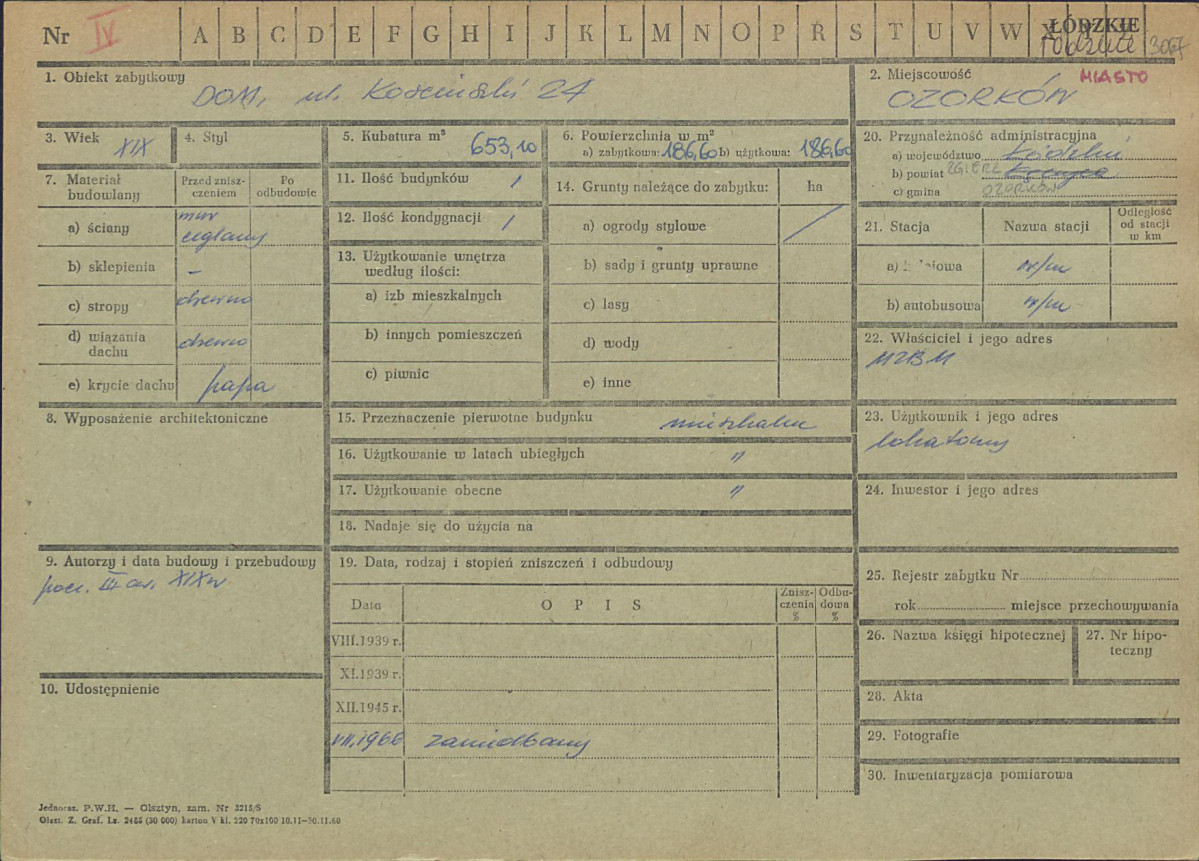 Nr IV A B C D E F G H I J K L M N O P R S T U V W X Y Z
ŁÓDZKIE
łódzkie 3067
1. Obiekt zabytkowy
DOM, ul. Kościuszki 24
2. Miejscowość MIASTO
OZORKÓW
3. Wiek XIX
4. Styl
5. Kubatura m³ 653,10
6. Powierzchnia w m²
a) zabytkowa: 186,60 b) użytkowa: 186,60
20. Przynależność administracyjna
a) województwo Łódzkie
b) powiat ZGIERZ Łęczyca
c) gmina OZORKÓW
7. Materiał budowlany
Przed zniszczeniem
Po odbudowie
a) ściany mur ceglany
b) sklepienia –
c) stropy drewno
d) wiązania dachu drewno
e) krycie dachu papa
8. Wyposażenie architektoniczne
9. Autorzy i data budowy i przebudowy
pocz. III ćw. XIX w
10. Udostępnienie
11. Ilość budynków 1
12. Ilość kondygnacji 1
13. Użytkowanie wnętrza według ilości:
a) izb mieszkalnych
b) innych pomieszczeń
c) piwnic
14. Grunty należące do zabytku: ha
a) ogrody stylowe /
b) sady i grunty uprawne
c) lasy
d) wody
e) inne
15. Przeznaczenie pierwotne budynku mieszkalne
16. Użytkowanie w latach ubiegłych "
17. Użytkowanie obecne "
18. Nadaje się do użycia na
19. Data, rodzaj i stopień zniszczeń i odbudowy
Data
OPIS
Zniszczenia %
Odbudowa %
VIII.1939 r.
XI.1939 r.
XII.1945 r.
VII.1966 zaniedbany
21. Stacja
Nazwa stacji
Odległość od stacji w km
a) kolejowa w/m
b) autobusowa w/m
22. Właściciel i jego adres
MZBM
23. Użytkownik i jego adres
lokatorzy
24. Inwestor i jego adres
25. Rejestr zabytku Nr
rok miejsce przechowywania
26. Nazwa księgi hipotecznej
27. Nr hipoteczny
28. Akta
29. Fotografie
30. Inwentaryzacja pomiarowa
Jednoraz. P.W.H. — Olsztyn, zam. Nr 3215/S
Olszt. Z. Graf. Ls. 2485 (30 000) karton V kl. 220 70x100 10.11—30.11.60